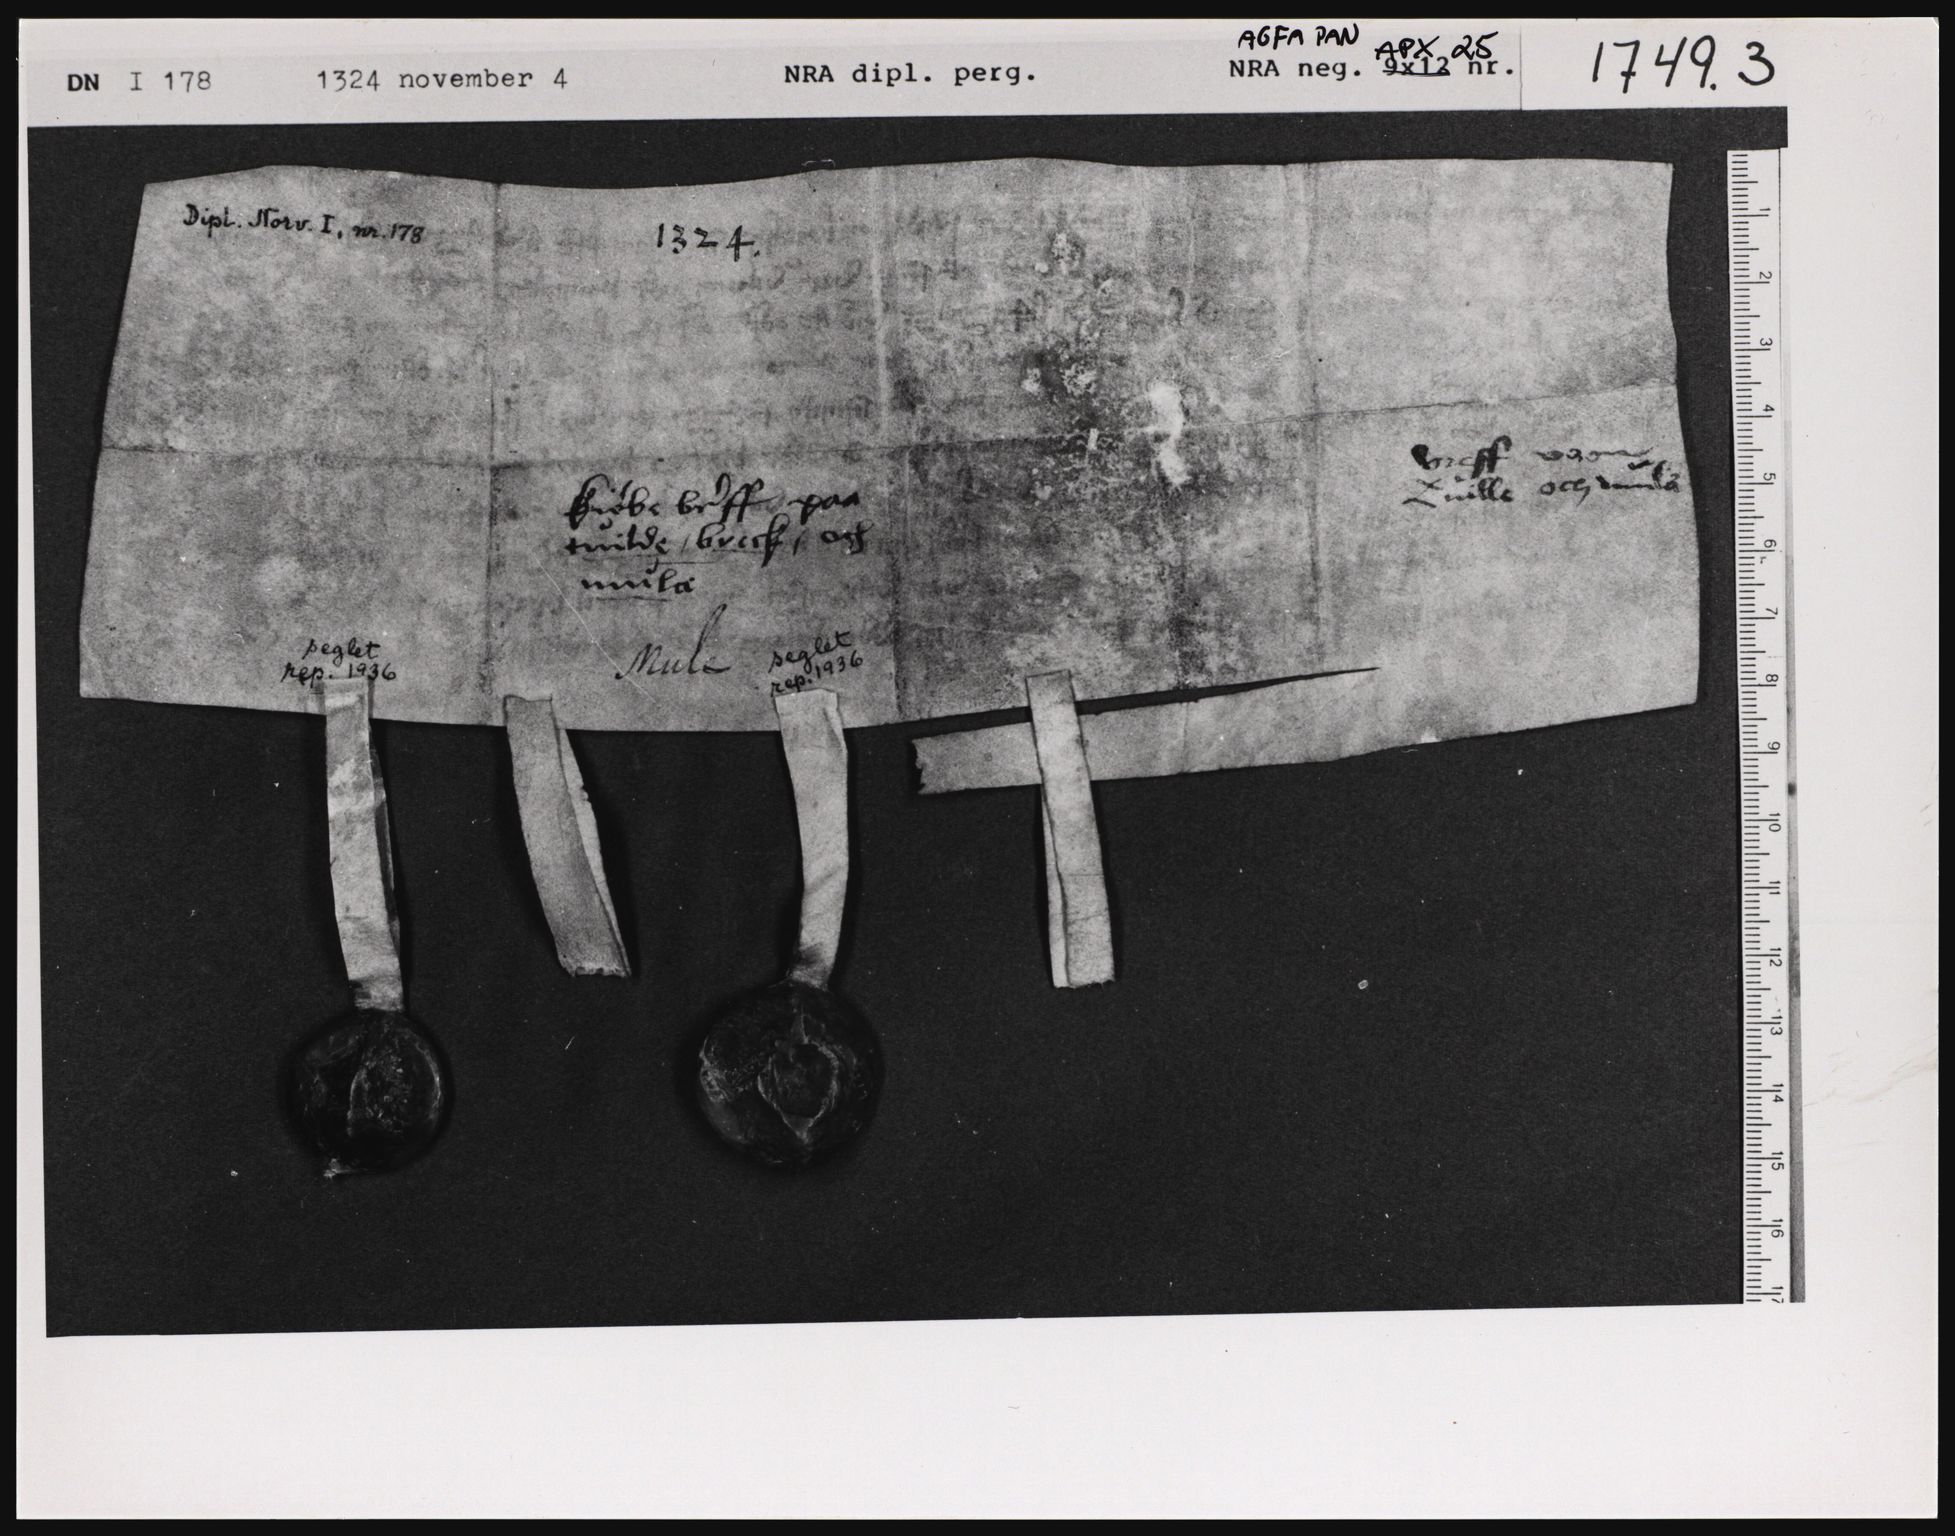 AGFA PAN
APX 25
DN I 178 1324 november 4 NRA dipl. perg. NRA neg. 9x12 nr. 1749.3
Dipl. Norv. I, nr. 178
1324.
breff
och mula
kiøbe breff paa
tuilde, breck, och
mula
Mule
seglet
rep. 1936
seglet
rep. 1936
1
2
3
4
5
6
7
8
9
10
11
12
13
14
15
16
17